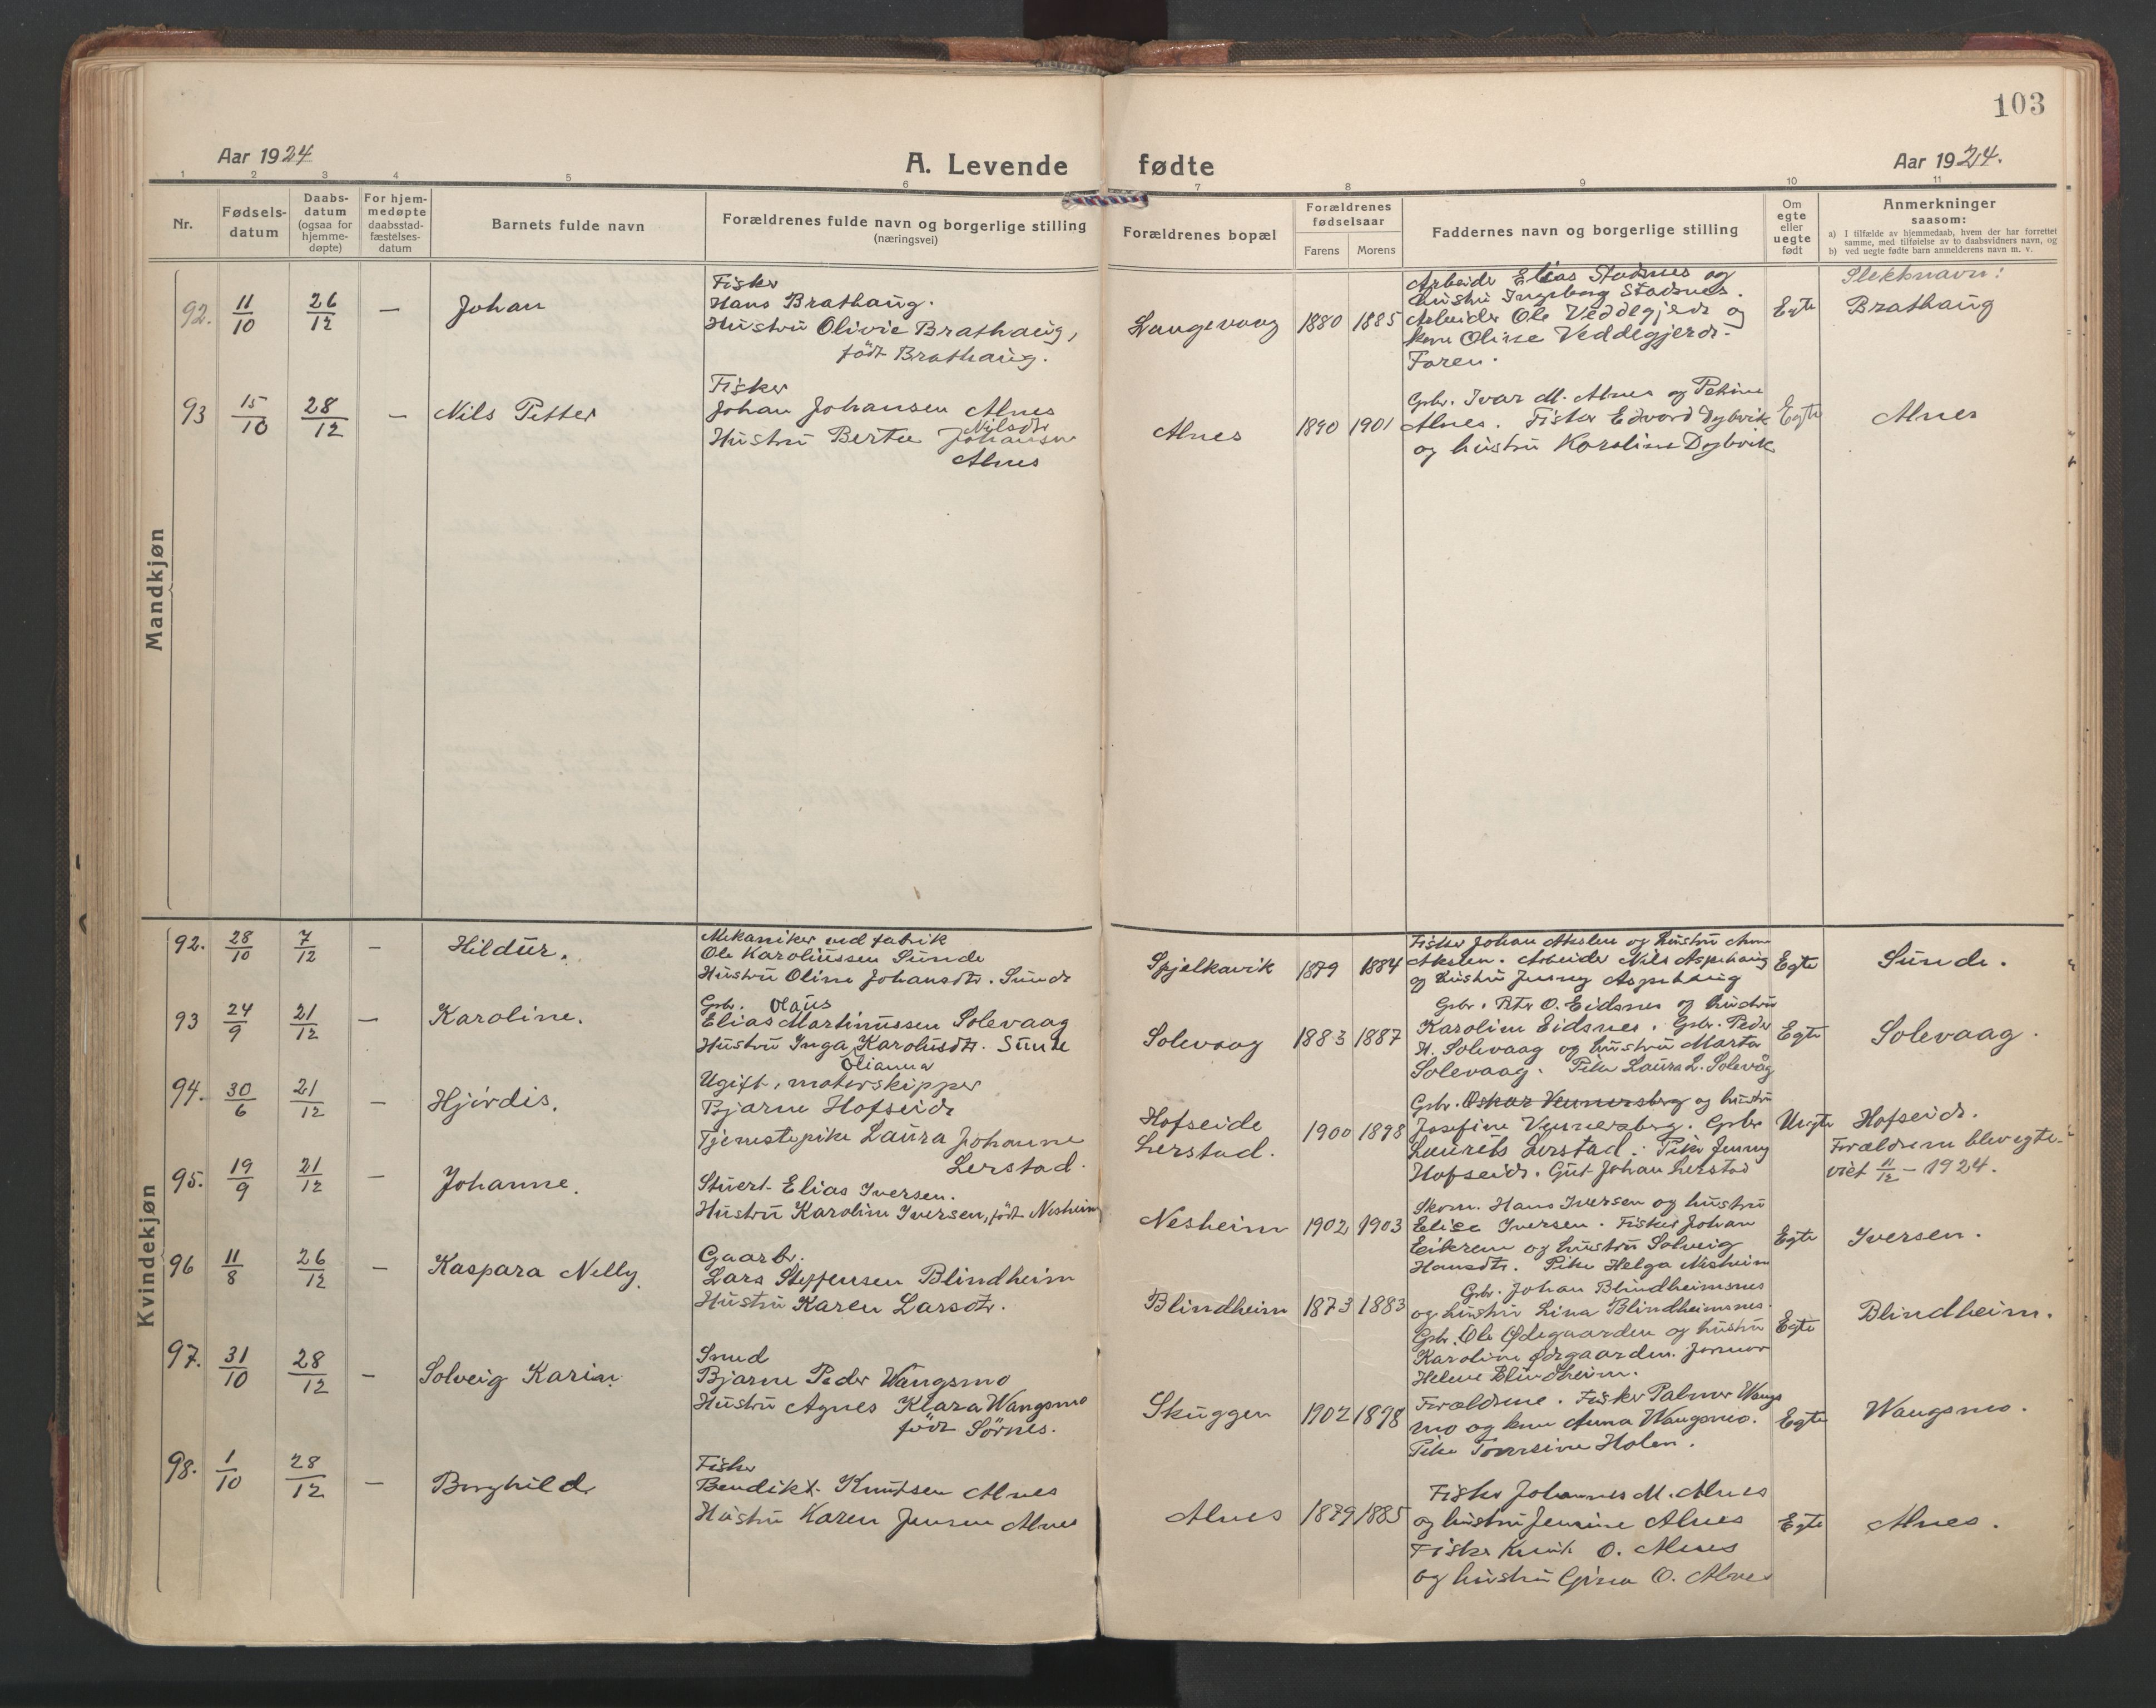 103
Aar 1924
A. Levende fødte
Aar 1924.
1 2 3 4 5 6 7 8 9 10 11
Nr.
Fødsels-
datum
Daabs-
datum
(ogsaa for
hjemme-
døpte)
For hjem-
medøpte
daabsstad-
fæstelses-
datum
Barnets fulde navn
Forældrenes fulde navn og borgerlige stilling
(næringsvei)
Forældrenes bopæl
Forældrenes
fødselsaar
Farens Morens
Faddernes navn og borgerlige stilling
Om
egte
eller
uegte
født
Anmerkninger
saasom:
a) I tilfælde av hjemmedaab, hvem der har forrettet
samme, med tilføielse av to daabsvidners navn, og
b) ved uegte fødte barn anmelderens navn m. v.
Mandkjøn
92. 11/10 26/12 — Johan
Fisker
Hans Brathaug.
Hustru Olivie Brathaug,
født Brathaug.
Langevaag 1880 1885
Arbeider Elias Stadsnes og
hustru Ingeborg Stadsnes.
Arbeider Ole Veddegjerde og
kone Oline Veddegjerde.
Faren.
Egte
Slektnavn:
Brathaug
93 15/10 28/12 — Nils Petter
Fisker
Johan Johansen Alnes
Nilsdtr
Hustru Berte Johansen
Alnes
Alnes 1890 1901
Gbr. Ivar M. Alnes og Petrine
Alnes. Fisker Edvard Dybvik
og hustru Karoline Dybvik
Egte
Alnes
Kvindekjøn
92. 28/10 7/12 — Hildur.
Mekaniker ved fabrik
Ole Karoliussen Sunde
Hustru Oline Johansdtr. Sunde
Spjelkavik 1879 1884
Fisker Johan Akslen og hustru Anne
Akslen. Arbeider Nils Aspehaug
og hustru Jenny Aspehaug
Egte
Sunde.
93 24/9 21/12 — Karoline.
Gbr. Olaus
Elias Martinussen Solevaag
Hustru Inga Karolusdtr. Sunde
Olianna
Solevaag 1883 1887
Gbr. Peter O. Eidsnes og hustru
Karoline Eidsnes. Gbr. Peder
H. Solevaag og hustru Marta
Solevaag. Pike Laura L. Solevåg
Egte
Solevaag.
94. 30/6 21/12 — Hjørdis.
Ugift, motorskipper
Bjarne Hofseide
Tjenestepike Laura Johanne
Lerstad.
Hofseide
Lerstad.
1900 1898
Gbr. Oskar Vennersberg og hustru
Josefine Vennersberg. Gbr.
Laurits Lerstad. Pike Jenny
Hofseide. Gut Johan Lerstad
Uegte
Hofseide.
Forældrene blev egte-
viet 11/12 – 1924.
95. 19/9 21/12 — Johanne.
Stuert Elias Iversen.
Hustru Karoline Iversen, født Nesheim
Nesheim 1902 1903
Skom. Hans Iversen og hustru
Elise Iversen. Fisker Johan
Eikrem og hustru Solveig
Hansdtr. Pike Helga Nesheim
Egte
Iversen.
96 11/8 26/12 — Kaspara Nelly.
Gaarbr.
Lars Steffensen Blindheim
Hustru Karen Larsdtr.
Blindheim 1873 1883
Gbr. Johan Blindheimsnes
og hustru Lina Blindheimsnes.
Gbr. Ole Ødegaarden og hustru
Karoline Ødegaarden. Jomfr
Helene Blindheim.
Egte
Blindheim.
97. 31/10 28/12 — Solveig Karin.
Smed
Bjarne Peder Wangsmo
Hustru Agnes Klara Wangsmo
født Sørnes.
Skuggen 1902 1898
Forældrene. Fisker Palmer Wangs
mo og kone Anna Wangsmo.
Pike Tomine Holen.
Egte
Wangsmo.
98. 1/10 28/12 — Borghild
Fisker
Bendikt Knutsen Alnes
Hustru Karen Jensen Alnes
Alnes 1879 1885
Fisker Johannes M. Alnes
og hustru Jensine Alnes
Fisker Knut O. Alnes
og hustru Gina O. Alnes
Egte
Alnes.